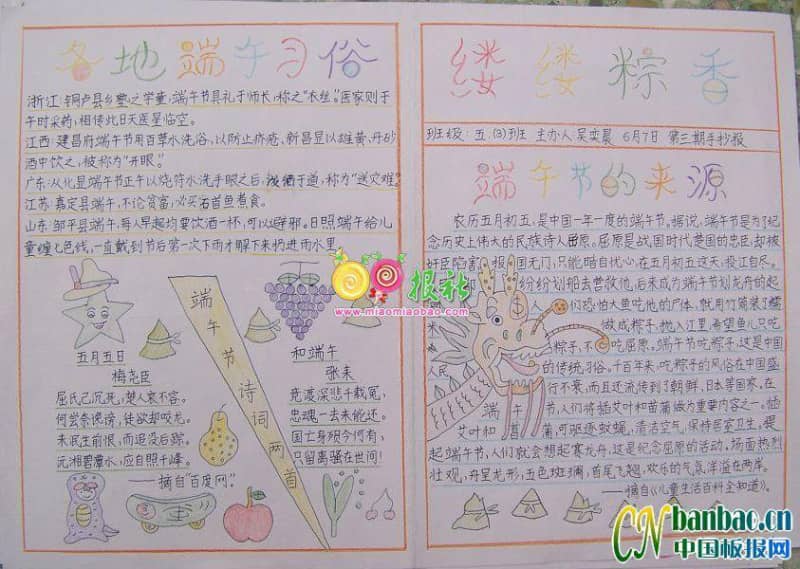 各地端午习俗
浙江:桐卢县乡塾之学童,端午节具礼于师长,称之“衣丝”。医家则于
午时采药,相传此日天医星临空。
江西:建昌府端午节用百草水洗浴,以防止疥疮,新昌县以雄黄,丹砂
酒中饮之,被称为“开眼”。
广东:从化县端午节正午以烧符水洗手眼之后,泼洒于道,称为“送灾难”。
江苏:嘉定县端午,不论贫富,必买石首鱼煮食。
山东:邹平县端午,每人早起均要饮酒一杯,可以辟邪。日照端午给儿
童缠七色线,一直戴到节后第一次下雨才解下来扔进雨水里
五月五日
梅尧臣
屈氏已沉死,楚人哀不容。
何尝奈谗谤,徒欲却蛟龙。
未泯生前恨,而追没后踪。
沅湘碧潭水,应自照千峰。
——摘自“百度网”
端午节诗词两首
和端午
张耒
竞渡深悲千载冤,
忠魂一去未能还。
国亡身殒今何有,
只留离骚在世间!
缕缕粽香
班级:五(3)班 主办人:吴奕晨 6月7日 第三期手抄报
端午节的来源
农历五月初五,是中国一年一度的端午节。据说,端午节是为了纪
念历史上伟大的民族诗人屈原。屈原是战国时代楚国的忠臣,却被
奸臣陷害 报国无门,只能暗自忧心,在五月初五这天,投江自尽。
纷纷划船去营救他,后来成为端午节划龙舟的起
们恐怕大鱼吃他的尸体,就用竹筒装了糯
米 做成粽子,抛入江里,希望鱼儿只吃
粽子,不吃屈原。端午节吃粽子,这是中国
人民 的传统习俗。千百年来,吃粽子的风俗在中国盛
行不衰,而且还流传到了朝鲜,日本等国家。在
端午节,人们将插艾叶和菖蒲做为重要内容之一。插
艾叶和菖蒲,可驱逐蚊蝇,清洁空气,保持居室卫生。提
起端午节,人们就会想起赛龙舟,这是纪念屈原的活动。场面热烈
壮观,舟呈龙形,五色斑斓,首尾飞翘,欢乐的气氛洋溢在两岸。
——摘自《儿童生活百科全知道》。
报社
www.miaomiaobao.com
CN banbao.cn
中国板报网